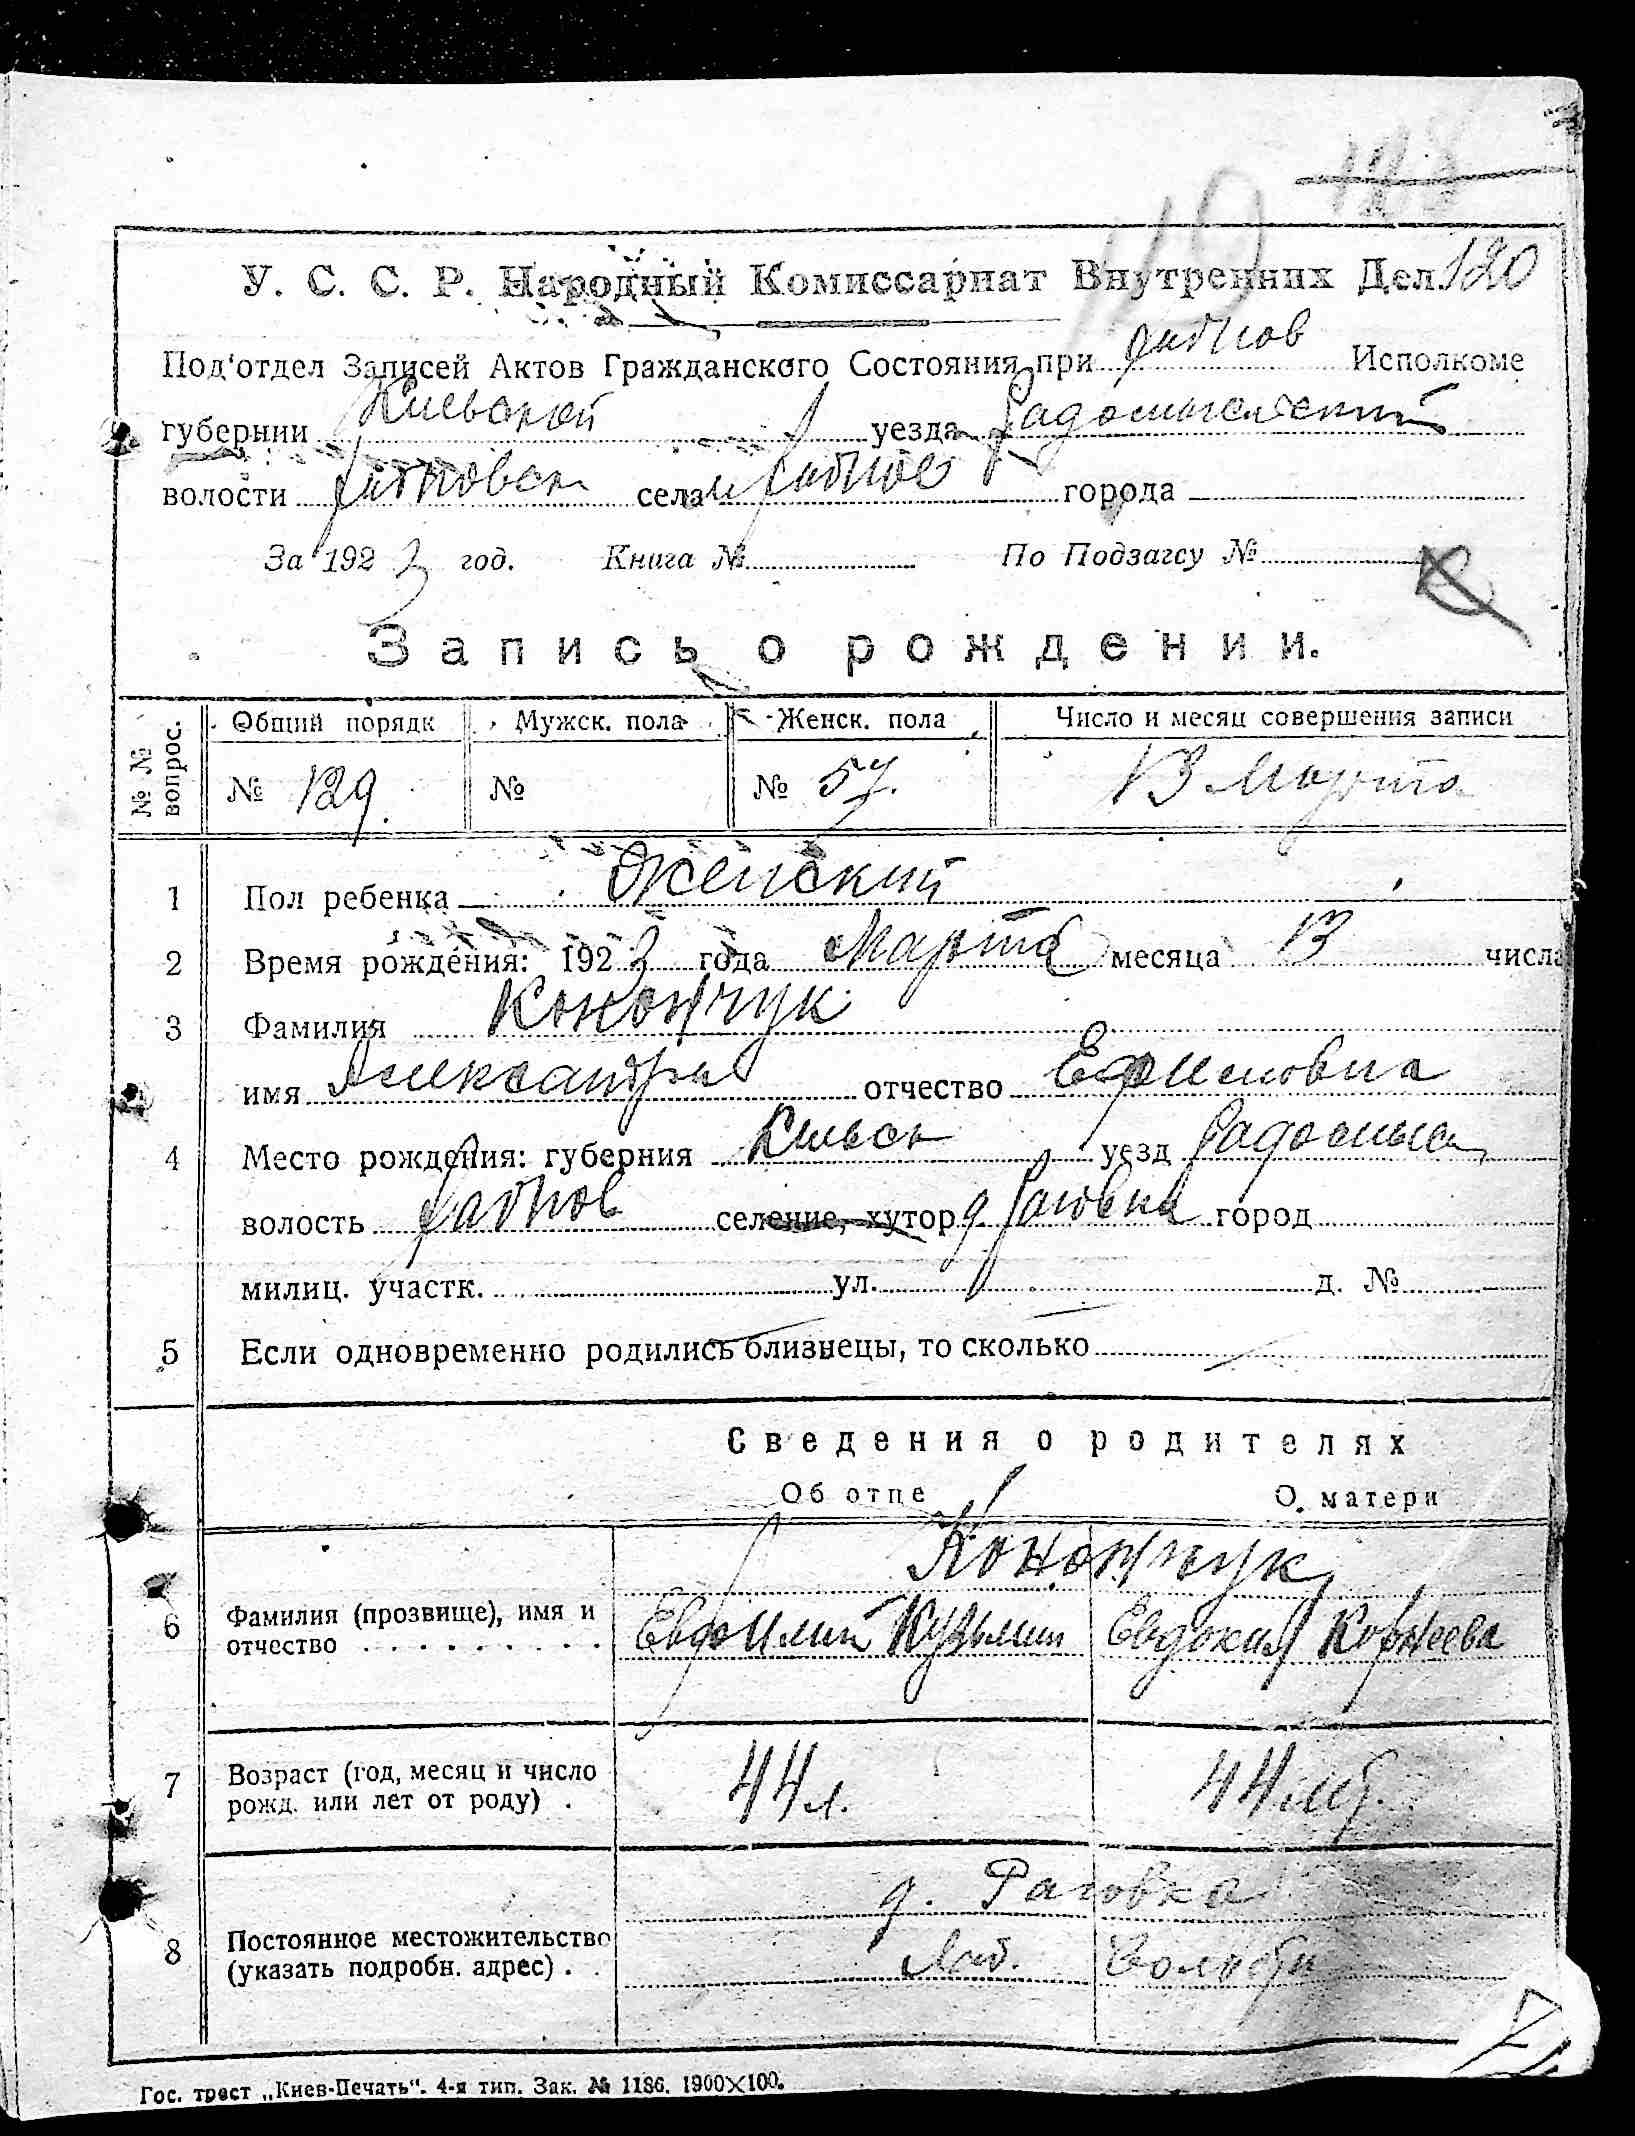 120
У. С. С. Р. Народный Комиссариат Внутренних Дел.
Под'отдел Записей Актов Гражданского Состояния при Исполкоме
губернии Киевской уезда Радомысльский
волости села города
За 1923 год. Книга № По Подзагсу №
Запись о рождении.
№ № вопрос. Общий порядк Мужск. пола Женск. пола Число и месяц совершения записи
№ 129. № № 57. 13 Марта
1 Пол ребенка Женский
2 Время рождения: 1923 года Марта месяца 13 числа
3 Фамилия Конончук
имя Александра отчество Ефимовна
4 Место рождения: губерния Киевск уезд Радомысл
волость селение, хутор д Раговка город
милиц. участк. ул. д. №
5 Если одновременно родились близнецы, то сколько
Сведения о родителях
Об отце О матери
Конончук
6 Фамилия (прозвище), имя и Евфимий Кузьмин Евдокия Корнеева
отчество
7 Возраст (год, месяц и число 44 л. 44 лет.
рожд. или лет от роду) .
д. Раговка
8 Постоянное местожительство волости
(указать подробн. адрес) .
Гос. трест „Киев-Печать“. 4-я тип. Зак. № 1186. 1900×100.